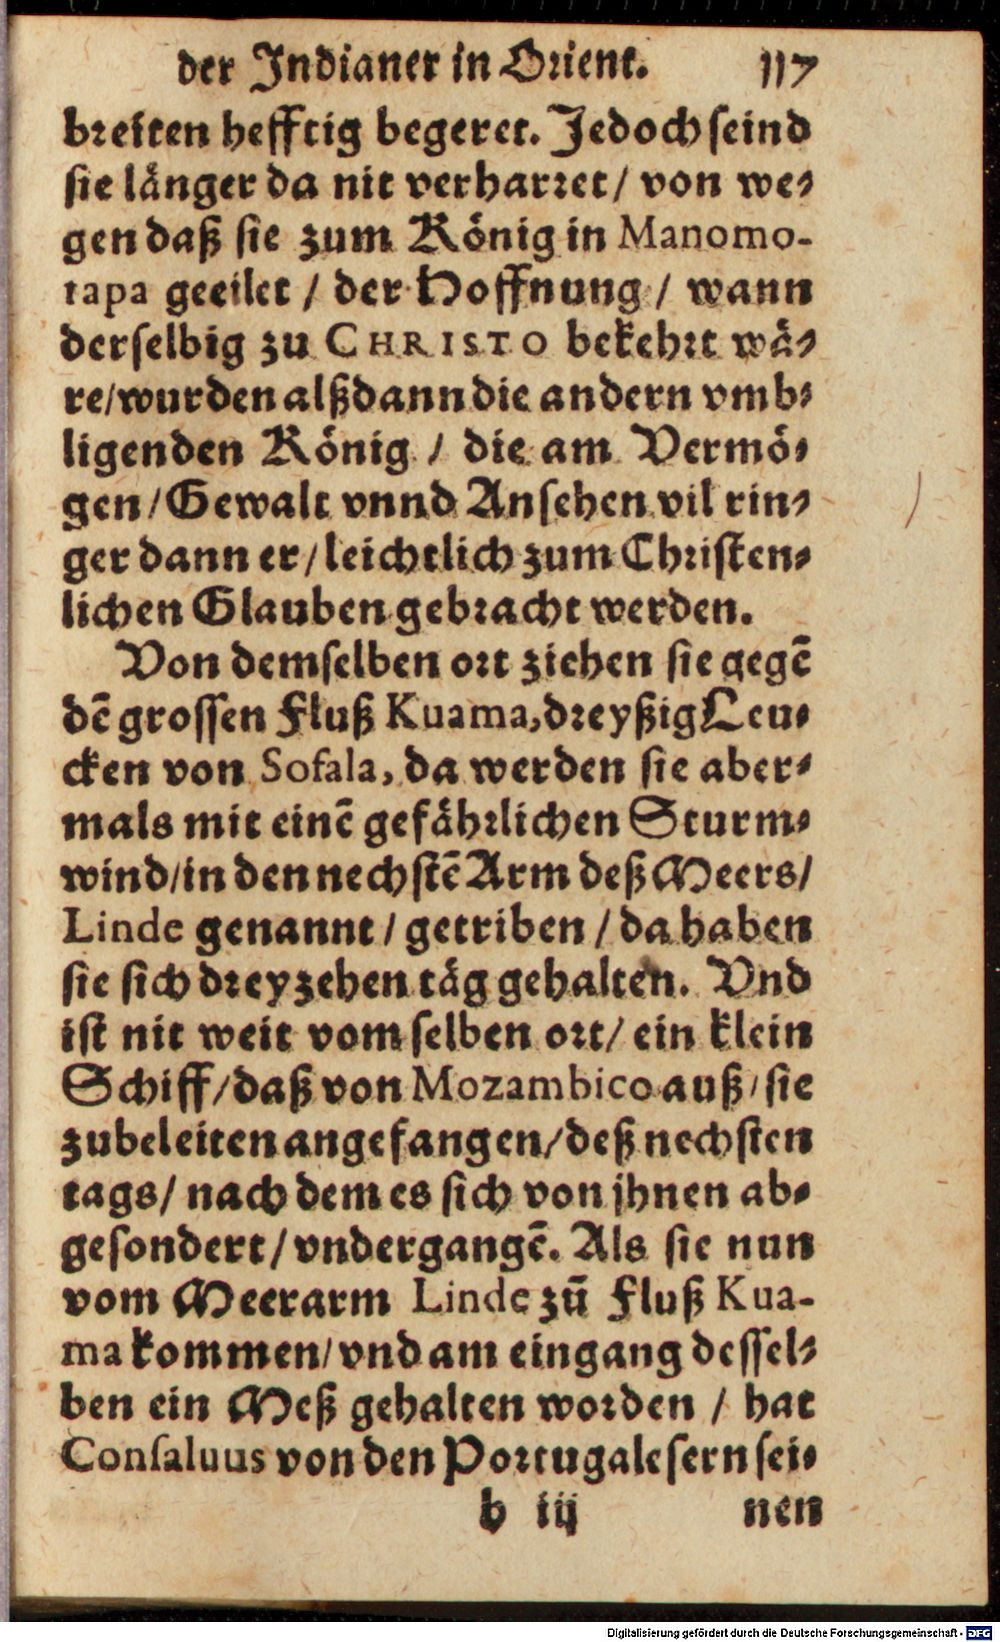 der Indianer in Orient. 117
breiten hefftig begeret. Jedoch seind
sie länger da nit verharret / von we⸗
gen daß sie zum König in Manomo-
tapa geeilet / der Hoffnung / wann
derselbig zu CHRISTO bekehrt wä⸗
re / wurden alßdann die andern vmb⸗
ligenden König / die am Vermö⸗
gen / Gewalt vnnd Ansehen vil rin⸗
ger dann er / leichtlich zum Christen⸗
lichen Glauben gebracht werden.
Von demselben ort ziehen sie gegē
dē grossen Fluß Kuama, dreyßig Leu⸗
cken von Sofala, da werden sie aber⸗
mals mit einē gefährlichen Sturm⸗
wind / in den nechstē Arm deß Meers /
Linde genannt / getriben / da haben
sie sich dreyzehen täg gehalten. Vnd
ist nit weit vom selben ort / ein klein
Schiff / daß von Mozambico auß / sie
zubeleiten angefangen / deß nechsten
tags / nach dem es sich von jhnen ab⸗
gesondert / vndergangē. Als sie nun
vom Meerarm Linde zū Fluß Kua-
ma kommen / vnd am eingang dessel⸗
ben ein Meß gehalten worden / hat
Consaluus von den Portugalesern sei⸗
h iij nen
Digitalisierung gefördert durch die Deutsche Forschungsgemeinschaft - DFG